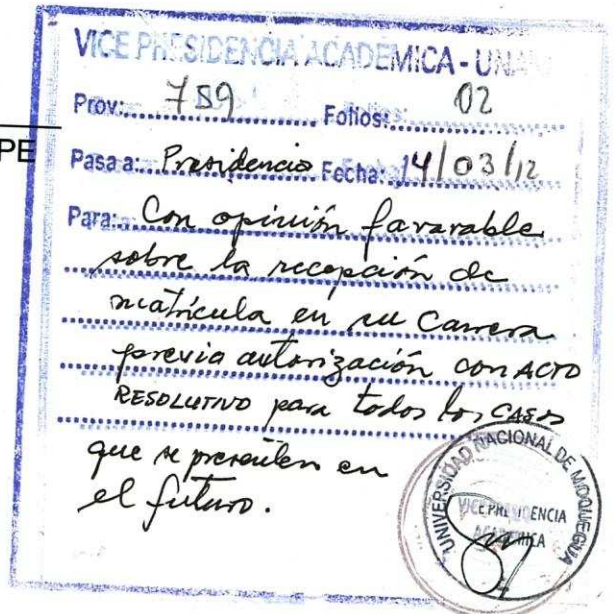 VICE PRESIDENCIA ACADEMICA - UNAM
Prov: 789 Folios: 02
PE
Pasa a: Presidencia Fecha: 14/03/12
Para: Con opinión favorable
sobre la recepción de
matrícula en su Carrera
previa autorización con ACTO
RESOLUTIVO para todos los CASOS
que se presenten en
el futuro.
UNIVERSIDAD NACIONAL DE MOQUEGUA
VICEPRESIDENCIA
ACADEMICA